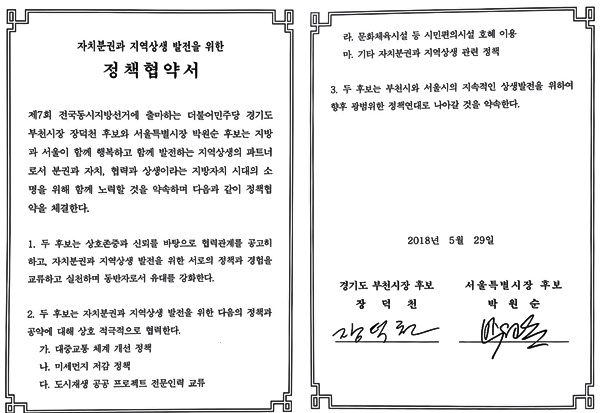 자치분권과 지역상생 발전을 위한
정책협약서
제7회 전국동시지방선거에 출마하는 더불어민주당 경기도
부천시장 장덕천 후보와 서울특별시장 박원순 후보는 지방
과 서울이 함께 행복하고 함께 발전하는 지역상생의 파트너
로서 분권과 자치, 협력과 상생이라는 지방자치 시대의 소
명을 위해 함께 노력할 것을 약속하며 다음과 같이 정책협
약을 체결한다.
1. 두 후보는 상호존중과 신뢰를 바탕으로 협력관계를 공고히
하고, 자치분권과 지역상생 발전을 위한 서로의 정책과 경험을
교류하고 실천하며 동반자로서 유대를 강화한다.
2. 두 후보는 자치분권과 지역상생 발전을 위한 다음의 정책과
공약에 대해 상호 적극적으로 협력한다.
가. 대중교통 체계 개선 정책
나. 미세먼지 저감 정책
다. 도시재생 공공 프로젝트 전문인력 교류
라. 문화체육시설 등 시민편의시설 호혜 이용
마. 기타 자치분권과 지역상생 관련 정책
3. 두 후보는 부천시와 서울시의 지속적인 상생발전을 위하여
향후 광범위한 정책연대로 나아갈 것을 약속한다.
2018년 5월 29일
경기도 부천시장 후보 서울특별시장 후보
장 덕 천 박 원 순
장덕천 박원순